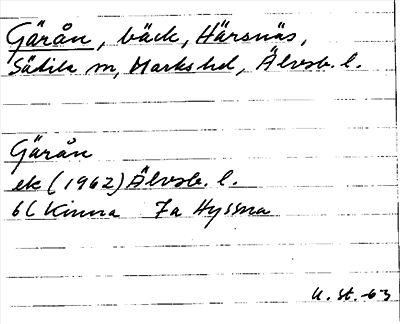 Gärån, bäck, Härsnäs,
Sätila sn, Marks hd, Älvsb. l.
Gärån
ek (1962) Älvsb. l.
6C Kinna 7a Hyssna
U. st. -63